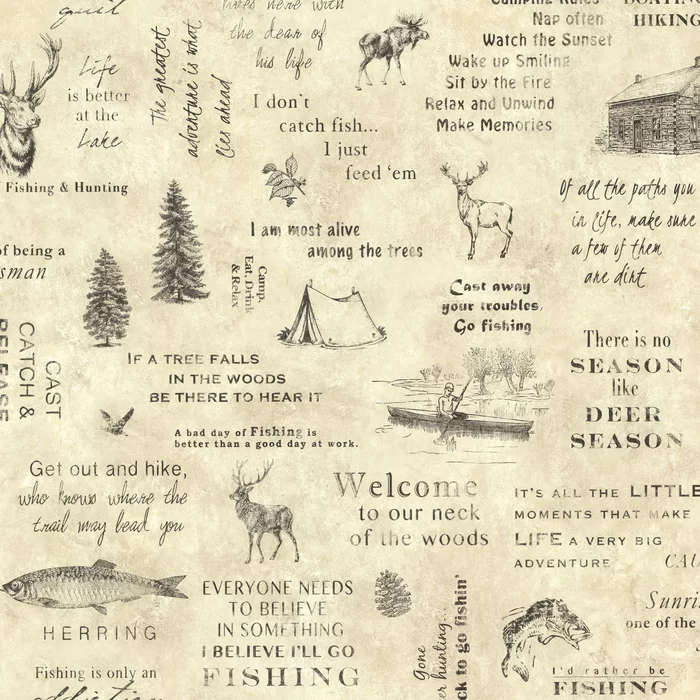 quit
Life
is better
at the
Lake
The greatest
adventure is what
lies ahead
lives here with
the dear of
his life
I don't
catch fish...
I just
feed 'em
Camping Rules
Nap often
Watch the Sunset
Wake up Smiling
Sit by the Fire
Relax and Unwind
Make Memories
BOATING
HIKING
Fishing & Hunting
of being a
sman
I am most alive
among the trees
Camp,
Eat, Drink
& Relax
Of all the paths you
in life, make sure
a few of them
are dirt
Cast away
your troubles,
Go fishing
CAST
CATCH &
RELEASE
IF A TREE FALLS
IN THE WOODS
BE THERE TO HEAR IT
A bad day of Fishing is
better than a good day at work.
There is no
SEASON
like
DEER
SEASON
Get out and hike,
who knows where the
trail may lead you
Welcome
to our neck
of the woods
IT'S ALL THE LITTLE
MOMENTS THAT MAKE
LIFE A VERY BIG
ADVENTURE
CAU
HERRING
EVERYONE NEEDS
TO BELIEVE
IN SOMETHING
I BELIEVE I'LL GO
FISHING
Gone
er hunting...
ck to go fishin'
Sunri
one of the
I'd rather be
FISHING
Fishing is only an
addiction